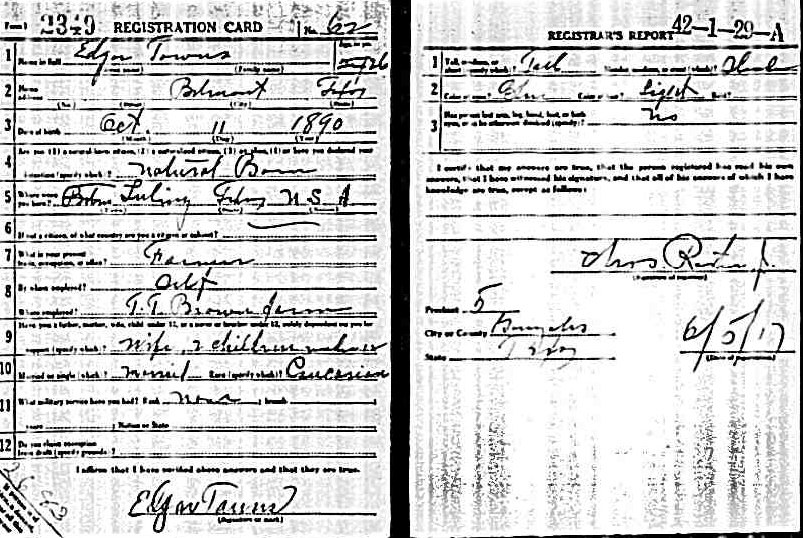 Form 1 2349 REGISTRATION CARD No. 62
1 Name in full Edgar Towns Age, in yrs 26
(Given name) (Family name)
2 Home address Belmont Texas
(No.) (Street) (City) (State)
3 Date of birth Oct 11 1890
(Month) (Day) (Year)
4 Are you (1) a natural-born citizen, (2) a naturalized citizen, (3) an alien, (4) or have you declared your
intention (specify which)? natural Born
5 Where were you born? Luling Texas U S A
(Town) (State) (Nation)
6 If not a citizen, of what country are you a citizen or subject?
7 What is your present trade, occupation, or office? Farmer
8 By whom employed? Self
Where employed? T. T. Brown farm
9 Have you a father, mother, wife, child under 12, or a sister or brother under 12, solely dependent on you for
support (specify which)? Wife, 2 children
10 Married or single (which)? Married Race (specify which)? Caucasian
11 What military service have you had? Rank none ; branch
; years ; Nation or State
12 Do you claim exemption from draft (specify grounds)?
I affirm that I have verified above answers and that they are true.
Edgar Towns
(Signature or mark)
REGISTRAR'S REPORT 42-1-29-A
1 Tall, medium, or short (specify which)? Tall Slender, medium, or stout (which)?
2 Color of eyes? Blue Color of hair? Light Bald?
3 Has person lost arm, leg, hand, foot, or both
eyes, or is he otherwise disabled (specify)? No
I certify that my answers are true, that the person registered has read his own
answers, that I have witnessed his signature, and that all of his answers of which I have
knowledge are true, except as follows:
(Signature of registrar)
Precinct 5
City or County Gonzales
State Texas
6/5/17
(Date of registration)